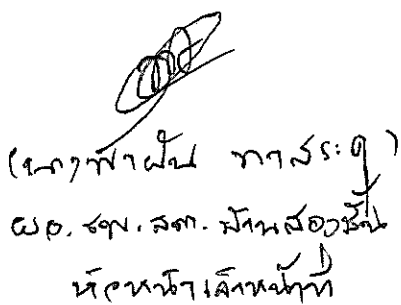 (นางฟ้าฝัน ทาสระคู)
ผอ. รพ.สต. บ้านสองชั้น
หัวหน้าเจ้าหน้าที่